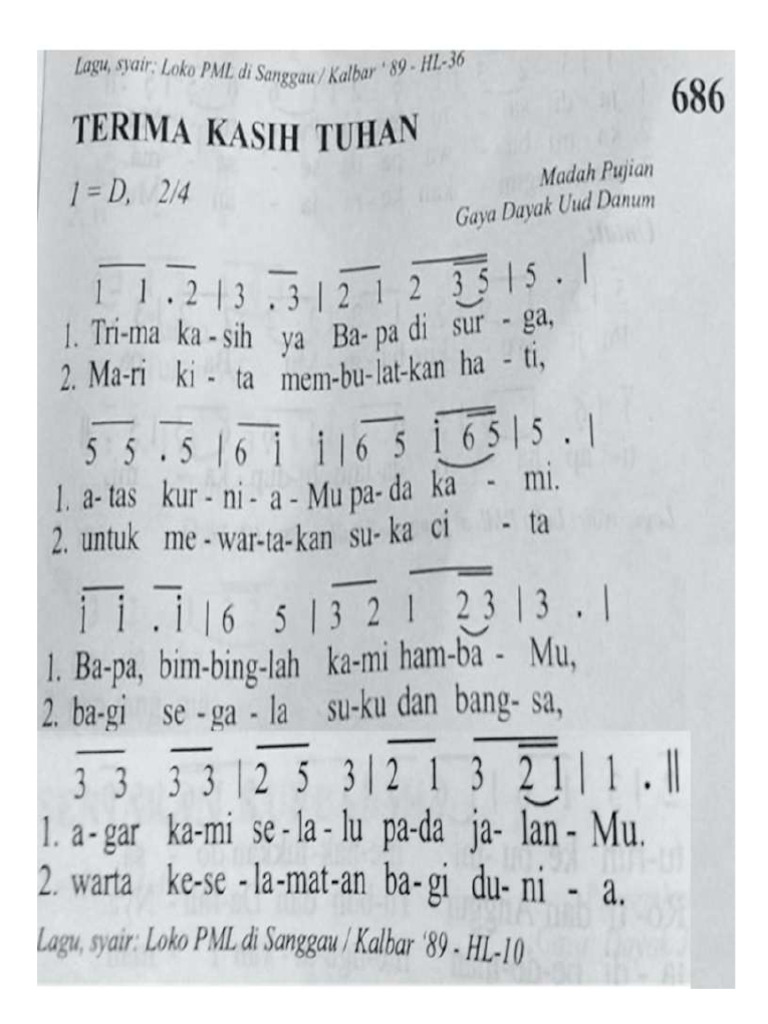 Lagu, syair: Loko PML di Sanggau / Kalbar ' 89 - HL-36
686
TERIMA KASIH TUHAN
1 = D, 2/4
Madah Pujian
Gaya Dayak Uud Danum
1 1 . 2 | 3 . 3 | 2 1 2 3 5 | 5 . |
1. Tri-ma ka - sih ya Ba- pa di sur - ga,
2. Ma-ri ki - ta mem-bu-lat-kan ha - ti,
5 5 . 5 | 6 i i | 6 5 i 6 5 | 5 . |
1. a- tas kur - ni - a - Mu pa- da ka - mi.
2. untuk me - war-ta-kan su- ka ci - ta
i i . i | 6 5 | 3 2 1 2 3 | 3 . |
1. Ba-pa, bim-bing-lah ka-mi ham-ba - Mu,
2. ba-gi se -ga - la su-ku dan bang- sa,
3 3 3 3 | 2 5 3 | 2 1 3 2 1 | 1 . ||
1. a - gar ka-mi se - la - lu pa-da ja- lan - Mu.
2. warta ke-se - la-mat-an ba- gi du- ni - a.
Lagu, syair: Loko PML di Sanggau / Kalbar '89 - HL-10